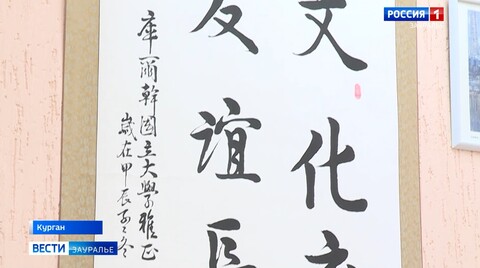 РОССИЯ 1
文化
友誼長
庫爾幹國立大學雅正
歲在甲辰冬
Курган
ВЕСТИ ЗАУРАЛЬЕ